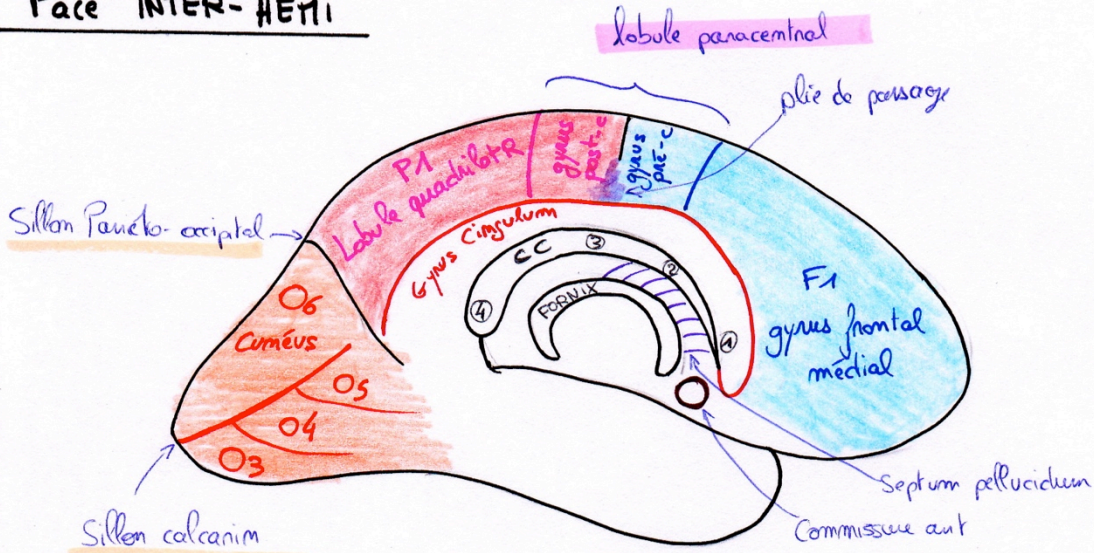 Face INTER-HEMI
lobule paracentral
plie de passage
P1
Lobule quadrilatR
gyrus
post-c
gyrus
pré-c
Sillon Pariéto-occipital
Gyrus Cingulum
CC
③
②
④
①
FORNIX
F1
gyrus frontal
médial
O6
Cunéus
O5
O4
O3
Septum pellucidum
Commissure ant
Sillon calcarin